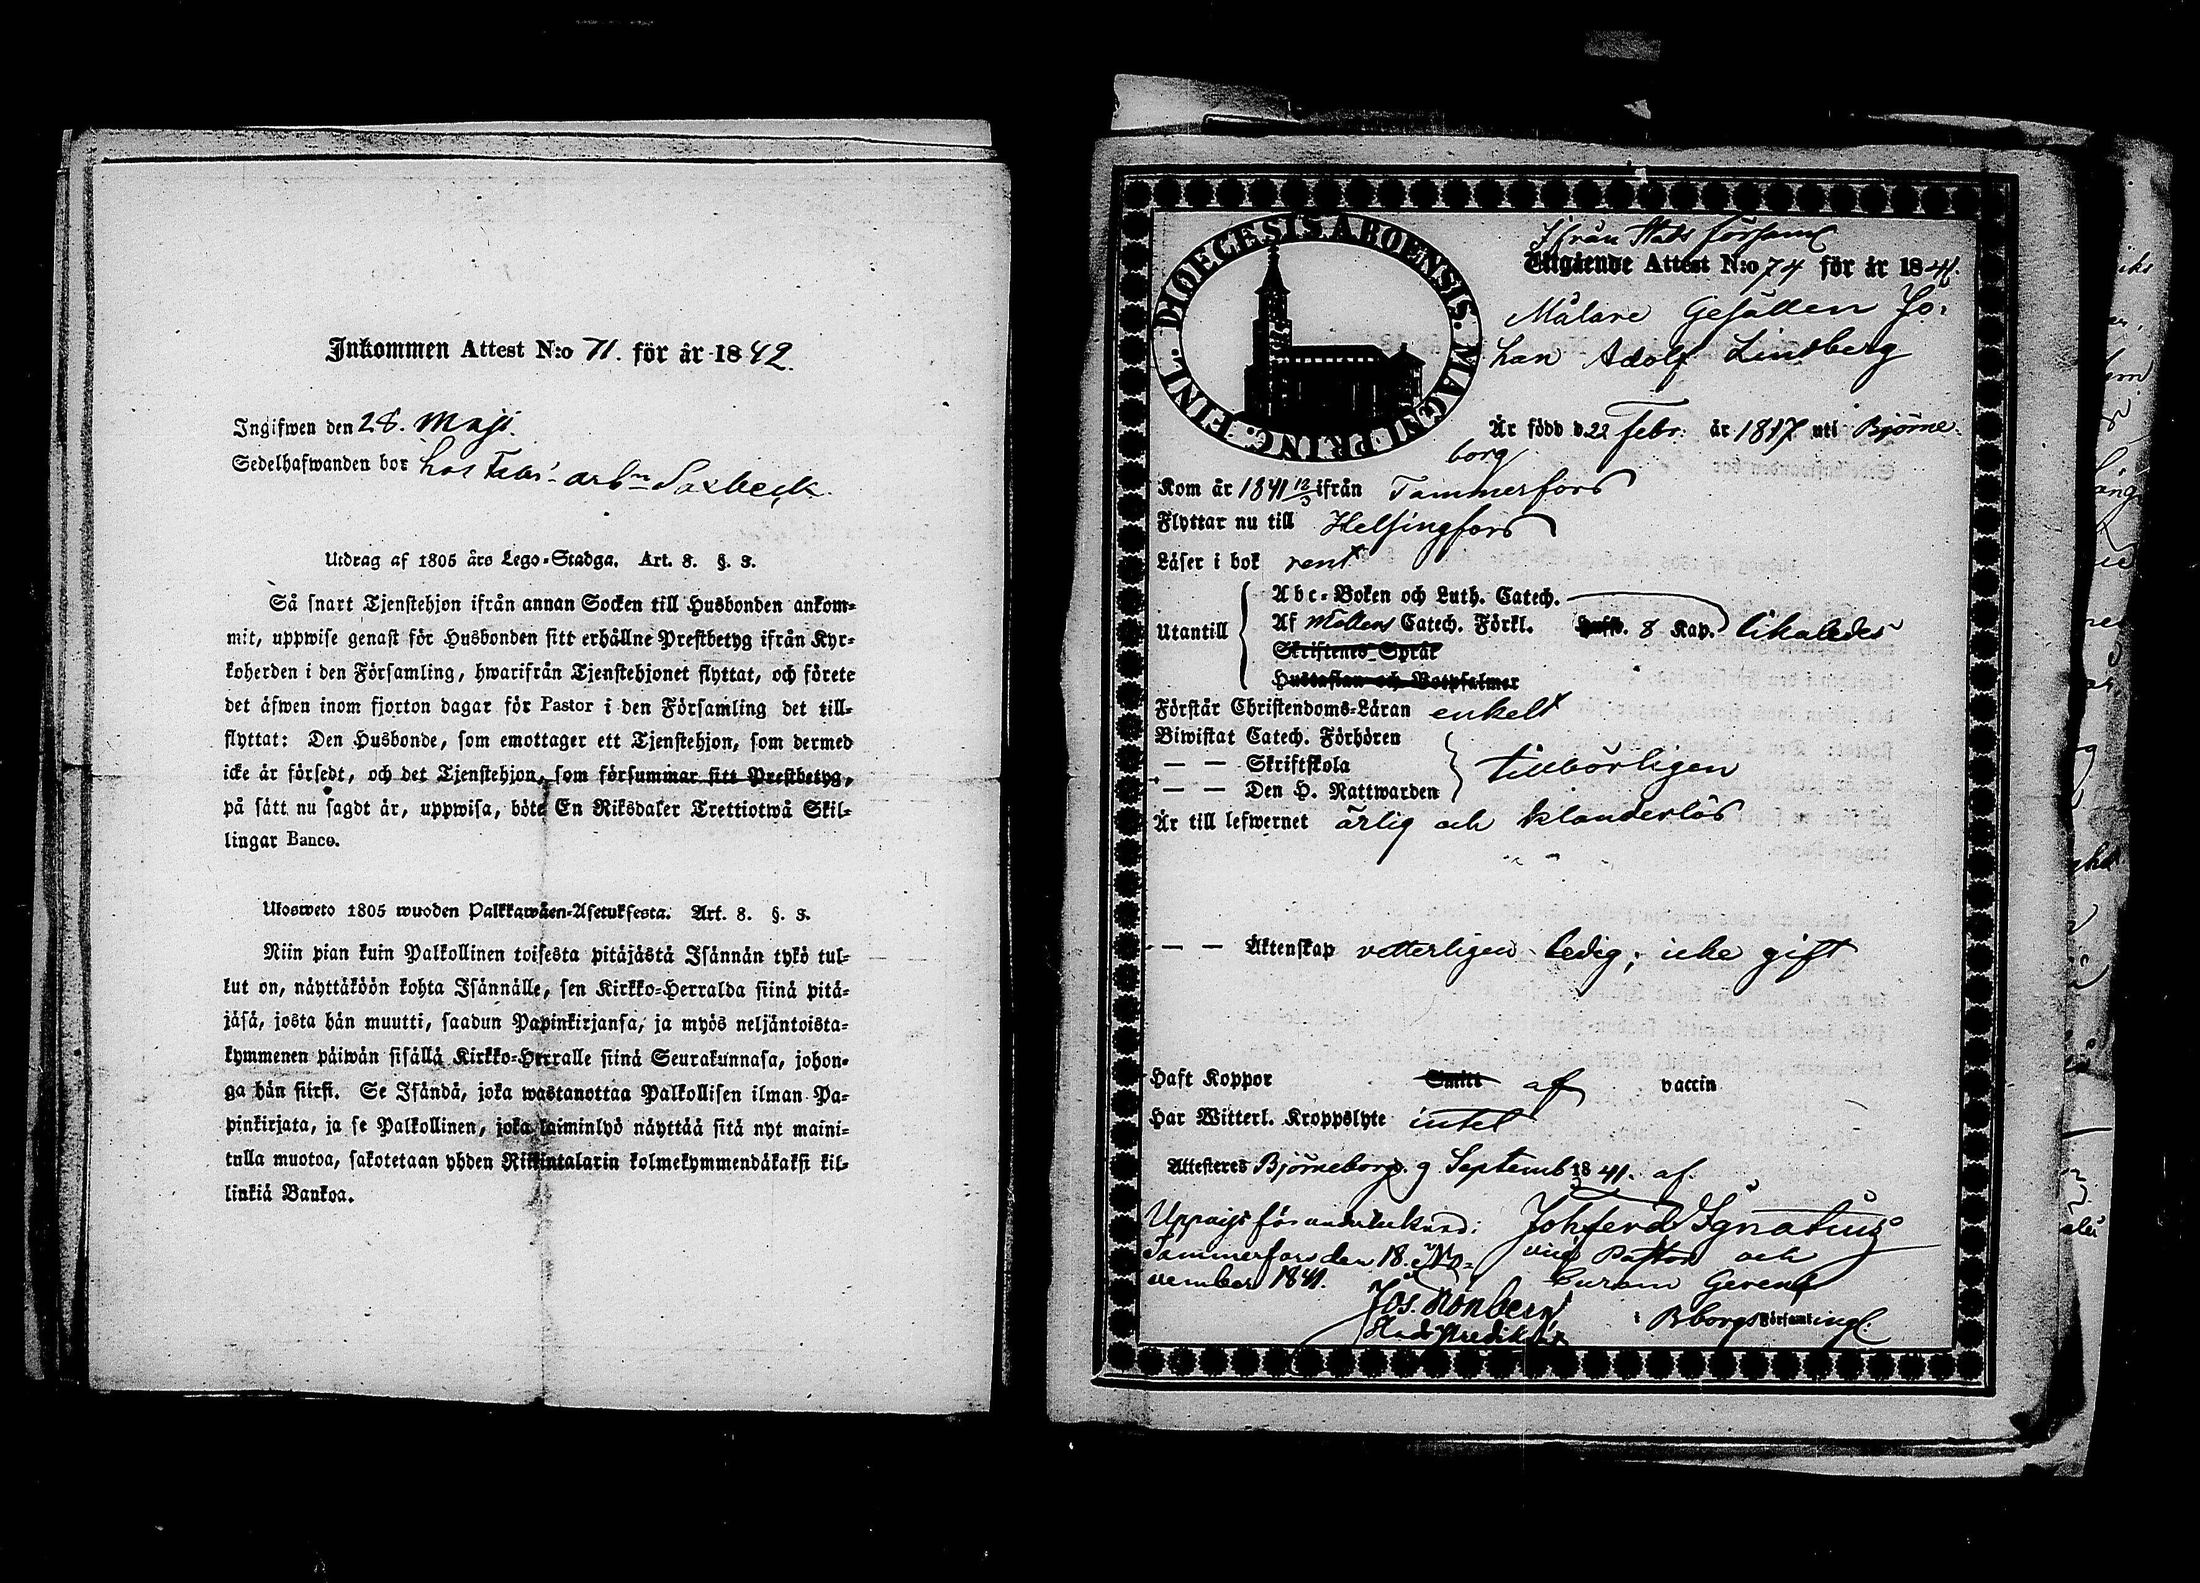 Inkommen Attest N:o 71. för år 1842.
Ingifwen den 28. Maji.
Sedelhafwanden bor hos Fabr: arbn Saxbeck.
Utdrag af 1805 års Lego-Stadga. Art. 8. §. 3.
Så snart Tjenstehjon ifrån annan Socken till Husbonden ankom-
mit, uppwise genast för Husbonden sitt erhållne Prestbetyg ifrån Kyr-
koherden i den Församling, hwarifrån Tjenstehjonet flyttat, och förete
det äfwen inom fjorton dagar för Pastor i den Församling det till-
flyttat: Den Husbonde, som emottager ett Tjenstehjon, som dermed
icke är försedt, och det Tjenstehjon, som försummar sitt Prestbetyg,
på sätt nu sagdt är, uppwisa, böte En Riksdaler Trettiotwå Skil-
lingar Banco.
Ulosweto 1805 wuoden Palkkawäen-Asetuksesta. Art. 8. §. 3.
Niin pian kuin Palkollinen toisesta pitäjästä Isännän tykö tul-
lut on, näyttäköön kohta Isännälle, sen Kirkko-Herralda siinä pitä-
jäsä, josta hän muutti, saadun Papinkirjansa, ja myös neljäntoista-
kymmenen päiwän sisällä Kirkko-Herralle siinä Seurakunnasa, johon-
ga hän siirsi. Se Isändä, joka wastanottaa Palkollisen ilman Pa-
pinkirjata, ja se Palkollinen, joka laiminlyö näyttää sitä nyt maini-
tulla muotoa, sakotetaan yhden Riksintalarin kolmekymmendäkaksi kil-
linkiä Bankoa.
DIOECESIS ABOENSIS. MAGNI PRINC. FINL.
Ifrån Stads Församl
Utgående Attest N:o 74 för år 1841.
Målare Gesällen Jo-
han Adolf Lindberg
Är född d. 22 Febr. år 1817 uti Björne-
borg
Kom år 1841 12/3 ifrån Tammerfors
Flyttar nu till Helsingfors
Läser i bok rent
Utantill
Abc-Boken och Luth. Catech.
Af Möllers Catech. Förkl. Hufst. 8 Kap. likaledes
Skriftenes Språk
Hustaflan och Botpsalmer
Förstår Christendoms-Läran enkelt
Biwistat Catech. Förhören
— — Skriftskola tillbörligen
— — Den H. Nattwarden
Är till lefwernet ärlig och klanderlös
— — Äktenskap vetterligen ledig; icke gift
Haft Koppor Smitt af vaccin
Har Witterl. Kroppslyte intet
Attesteres Björneborg d. 9 Septemb 1841. af
Joh Ferd Ignatius
vice Pastor och
Curam Gerens
i Bborgs Församlingl.
Uppvist för
Tammerfors den 18. No-
vember 1841.
Jos. Rönberg
Stads Predikant